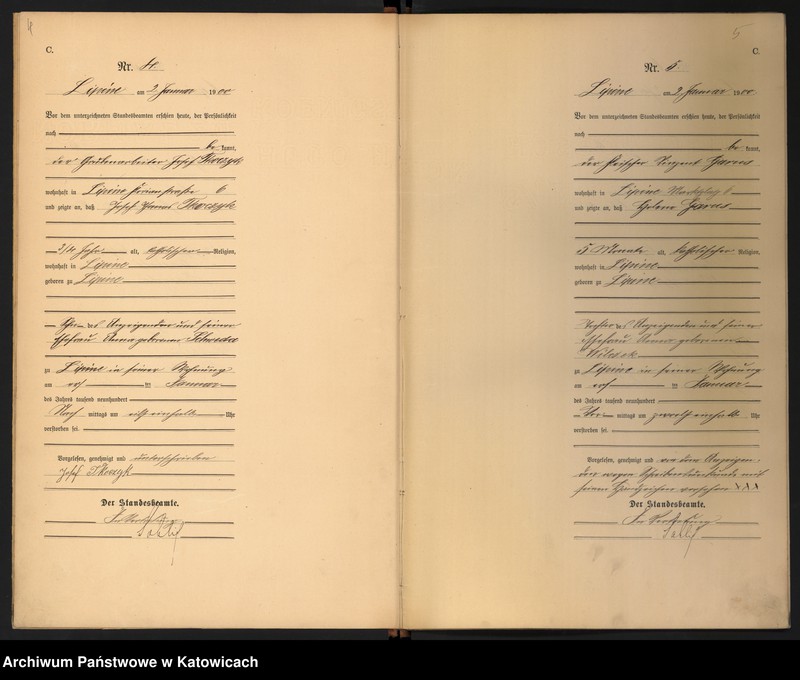 4
C.
Nr. 4.
Lipine am 2. Januar 1900
Vor dem unterzeichneten Standesbeamten erschien heute, der Persönlichkeit
nach
be kannt,
der Grubenarbeiter Josef Tkoczyk
wohnhaft in Lipine 6
und zeigte an, daß Josef Tkoczyk
3/4 Jahr alt, katholischer Religion,
wohnhaft in Lipine
geboren zu Lipine
Sohn des Anzeigenden und seiner
Ehefrau Anna geborenen
zu Lipine in seiner Wohnung
am ersten Januar
des Jahres tausend neunhundert
Nach mittags um elf einhalb Uhr
verstorben sei.
Vorgelesen, genehmigt und unterschrieben
Josef Tkoczyk
Der Standesbeamte.
In Vertretung
5
C.
Nr. 5.
Lipine am 2. Januar 1900
Vor dem unterzeichneten Standesbeamten erschien heute, der Persönlichkeit
nach
be kannt,
der Vinzent
wohnhaft in Lipine
und zeigte an, daß Helene
5 Monate alt, katholischer Religion,
wohnhaft in Lipine
geboren zu Lipine
Tochter des Anzeigenden und seiner
Ehefrau Anna geborenen
zu Lipine in seiner Wohnung
am ersten Januar
des Jahres tausend neunhundert
Vor mittags um zwölf einhalb Uhr
verstorben sei.
Vorgelesen, genehmigt und von dem Anzeigen-
den wegen Schreibensunkunde mit
seinem Handzeichen versehen XXX
Der Standesbeamte.
In Vertretung
Archiwum Państwowe w Katowicach